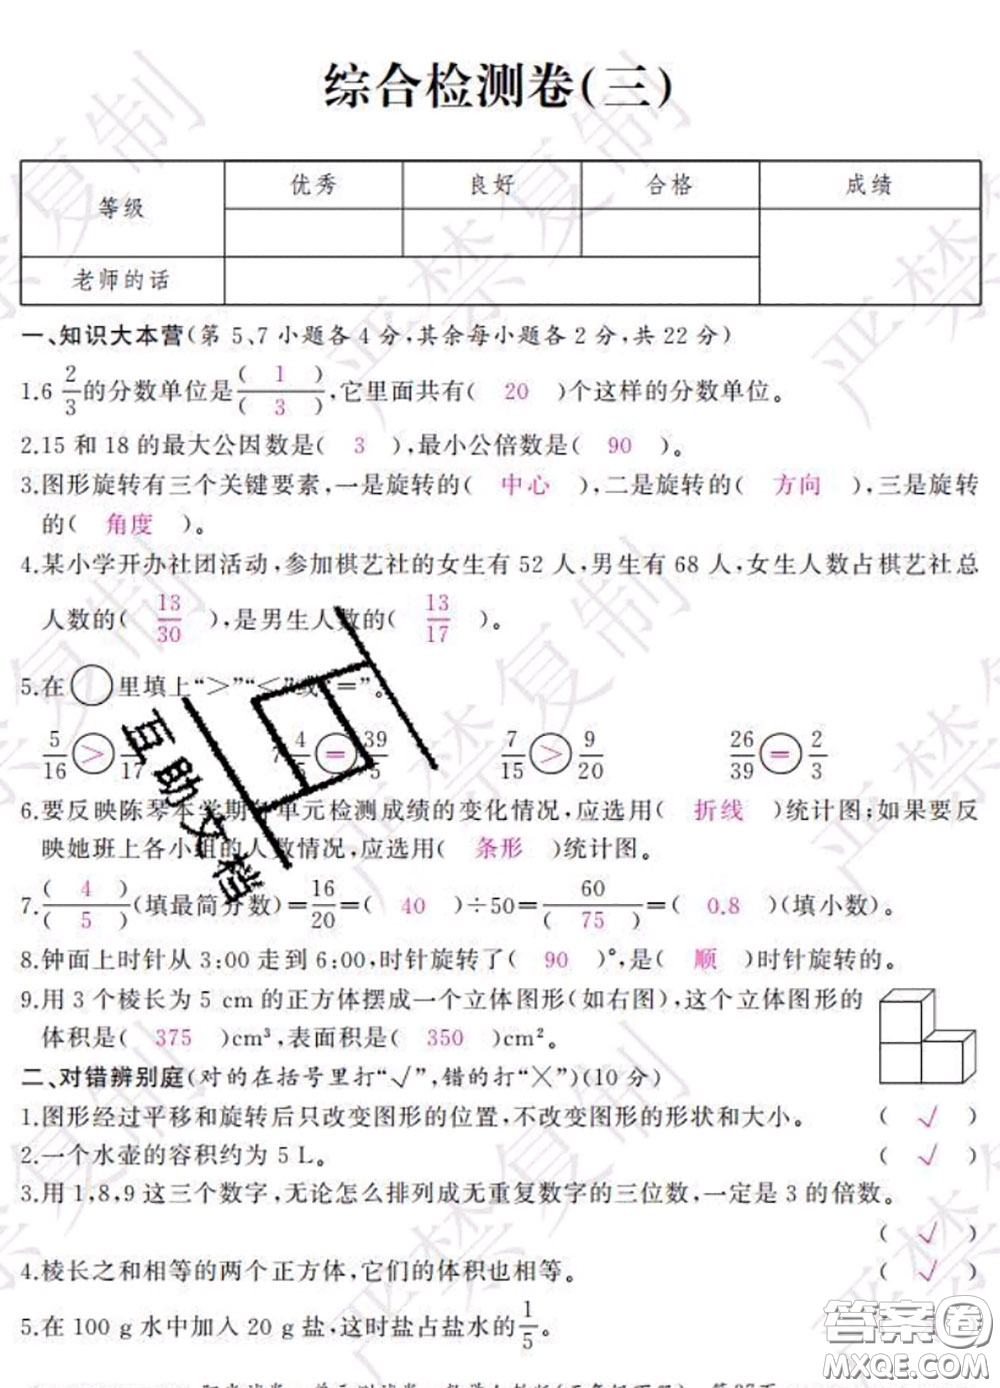 综合检测卷(三)
等级 优秀 良好 合格 成绩
老师的话
一、知识大本营(第 5、7 小题各 4 分,其余每小题各 2 分,共 22 分)
1.6 2/3 的分数单位是( 1 )/( 3 ),它里面共有( 20 )个这样的分数单位。
2.15 和 18 的最大公因数是( 3 ),最小公倍数是( 90 )。
3.图形旋转有三个关键要素,一是旋转的( 中心 ),二是旋转的( 方向 ),三是旋转
的( 角度 )。
4.某小学开办社团活动,参加棋艺社的女生有 52 人,男生有 68 人,女生人数占棋艺社总
人数的( 13/30 ),是男生人数的( 13/17 )。
5.在○里填上“>”“<”或“=”。
5/16 > /17 7 4/5 = 39/5 7/15 > 9/20 26/39 = 2/3
6.要反映陈琴本学期各单元检测成绩的变化情况,应选用( 折线 )统计图;如果要反
映她班上各小组的人数情况,应选用( 条形 )统计图。
7.( 4 )/( 5 )(填最简分数)=16/20=( 40 )÷50=60/( 75 )=( 0.8 )(填小数)。
8.钟面上时针从 3:00 走到 6:00,时针旋转了( 90 )°,是( 顺 )时针旋转的。
9.用 3 个棱长为 5 cm 的正方体摆成一个立体图形(如右图),这个立体图形的
体积是( 375 )cm³,表面积是( 350 )cm²。
二、对错辨别庭(对的在括号里打“√”,错的打“×”)(10 分)
1.图形经过平移和旋转后只改变图形的位置,不改变图形的形状和大小。 ( √ )
2.一个水壶的容积约为 5 L。 ( √ )
3.用 1,8,9 这三个数字,无论怎么排列成无重复数字的三位数,一定是 3 的倍数。
( √ )
4.棱长之和相等的两个正方体,它们的体积也相等。 ( √ )
5.在 100 g 水中加入 20 g 盐,这时盐占盐水的 1/5。
互助文档
严禁复制
答案圈
MXQE.COM